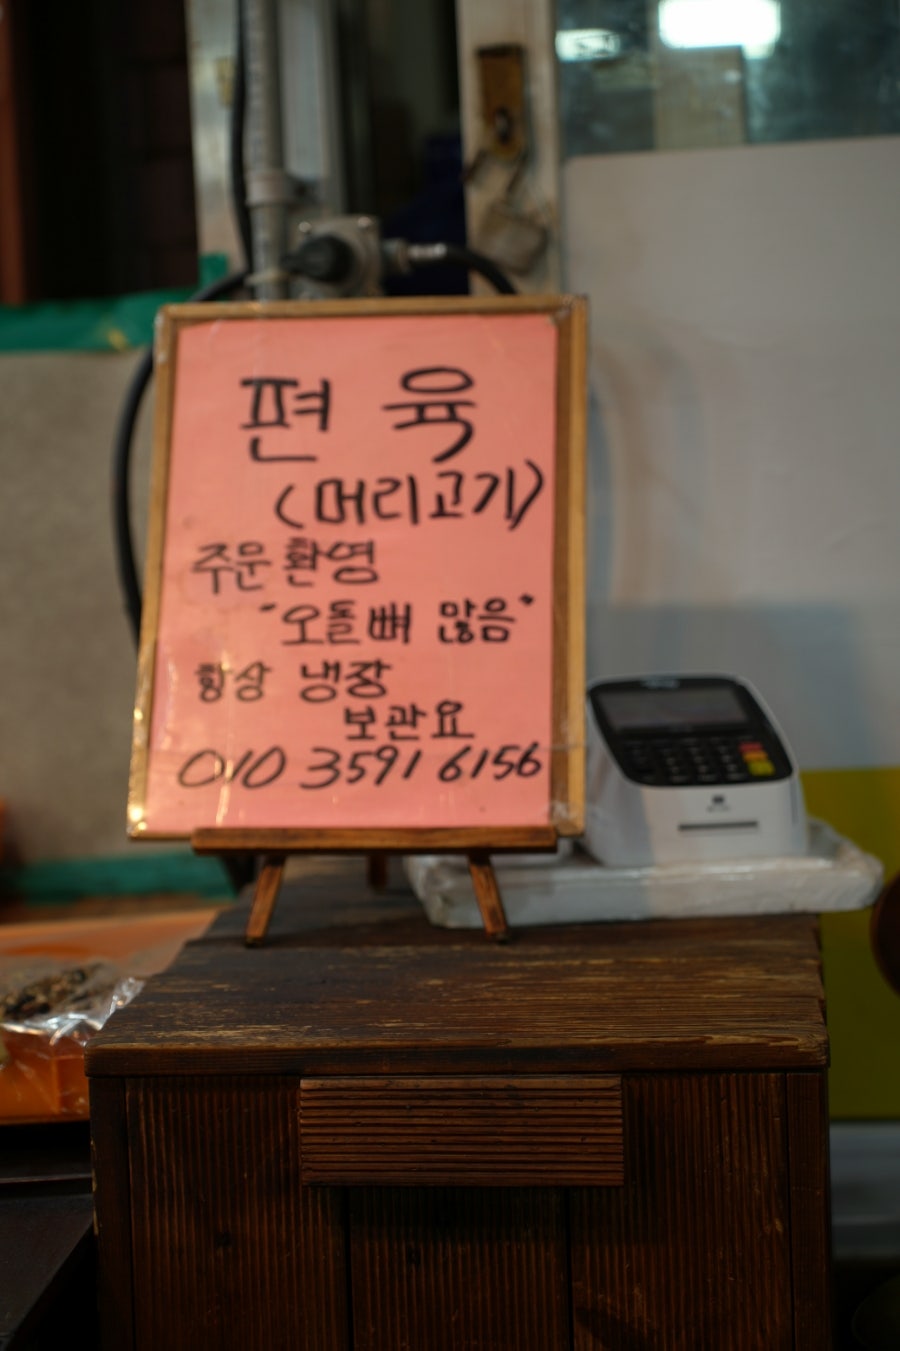 편육
(머리고기)
주문 환영
"오돌뼈 많음"
항상 냉장
보관요
010 3591 6156